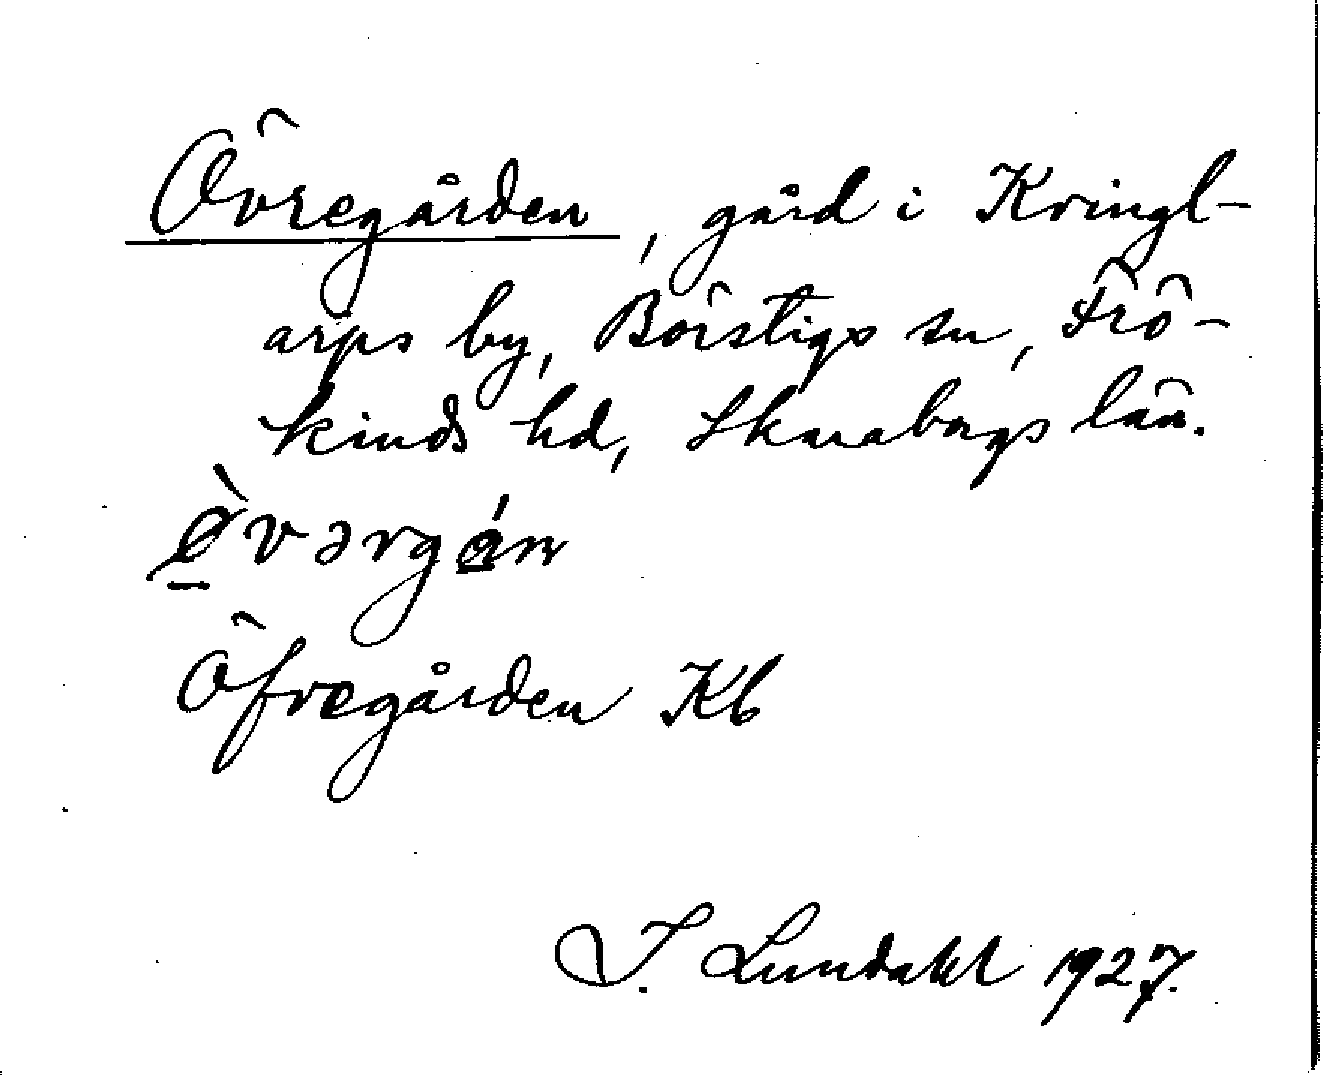 Övregården, gård i Kringl-
arps by, Börstigs sn, Frö-
kinds hd, Skarabogs län.
ø̀vərgán
Öfregården Kb
I. Lundahl 1927.